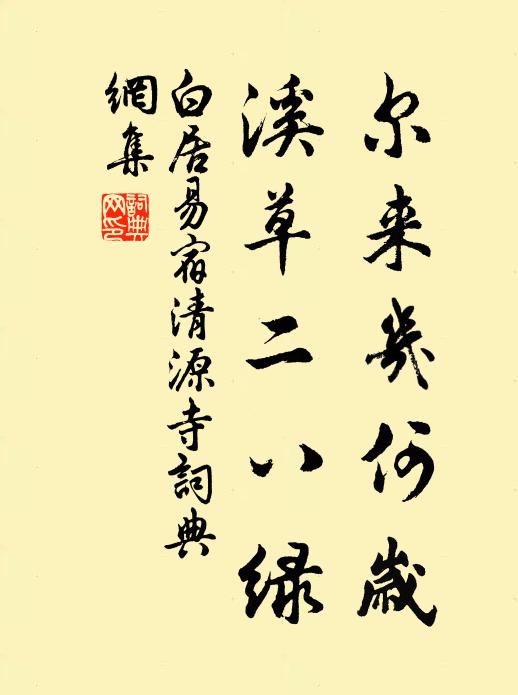 尔来几何歲
溪草二八緑
白居易宿清源寺詞典
網集
詞典
网印